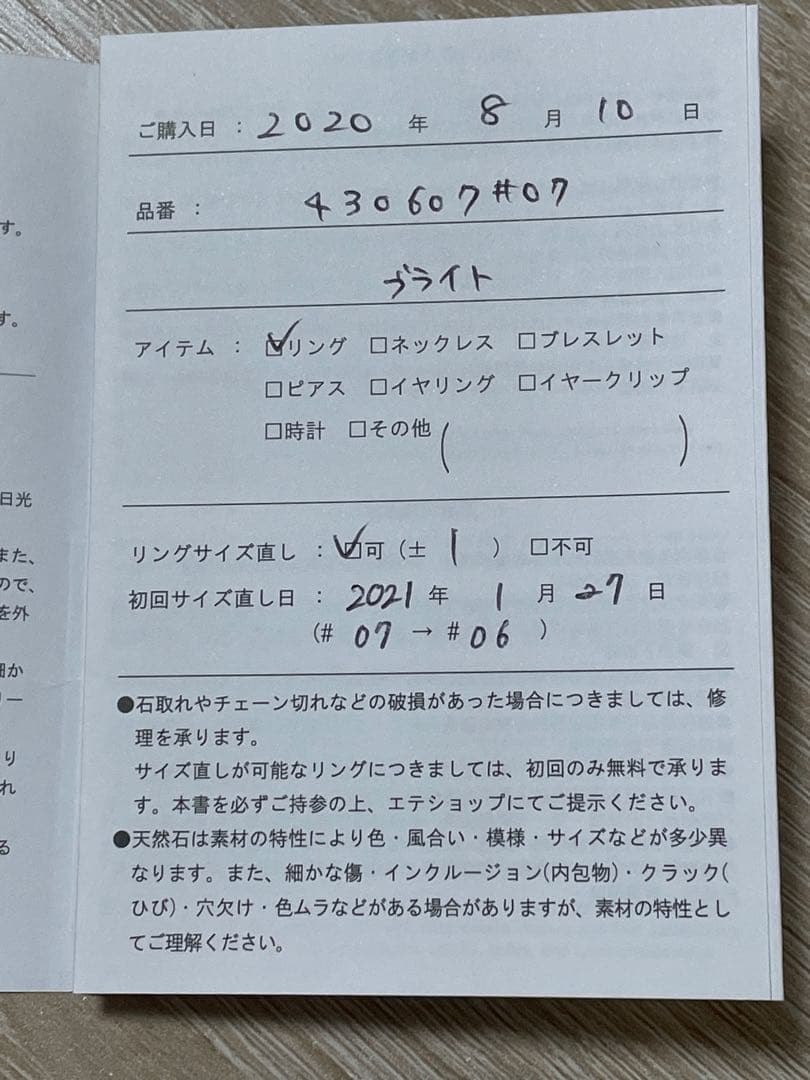 す。
す。
日光
また、
ので、
を外
細か
リー
り
れ
る
ご購入日 : 2020 年 8 月 10 日
品番 : 430607#07
ブライト
アイテム : ☑リング □ネックレス □ブレスレット
□ピアス □イヤリング □イヤークリップ
□時計 □その他( )
リングサイズ直し : ☑可(± 1 ) □不可
初回サイズ直し日 : 2021 年 1 月 27 日
(# 07 → # 06 )
●石取れやチェーン切れなどの破損があった場合につきましては、修
理を承ります。
サイズ直しが可能なリングにつきましては、初回のみ無料で承りま
す。本書を必ずご持参の上、エテショップにてご提示ください。
●天然石は素材の特性により色・風合い・模様・サイズなどが多少異
なります。また、細かな傷・インクルージョン(内包物)・クラック(
ひび)・穴欠け・色ムラなどがある場合がありますが、素材の特性とし
てご理解ください。